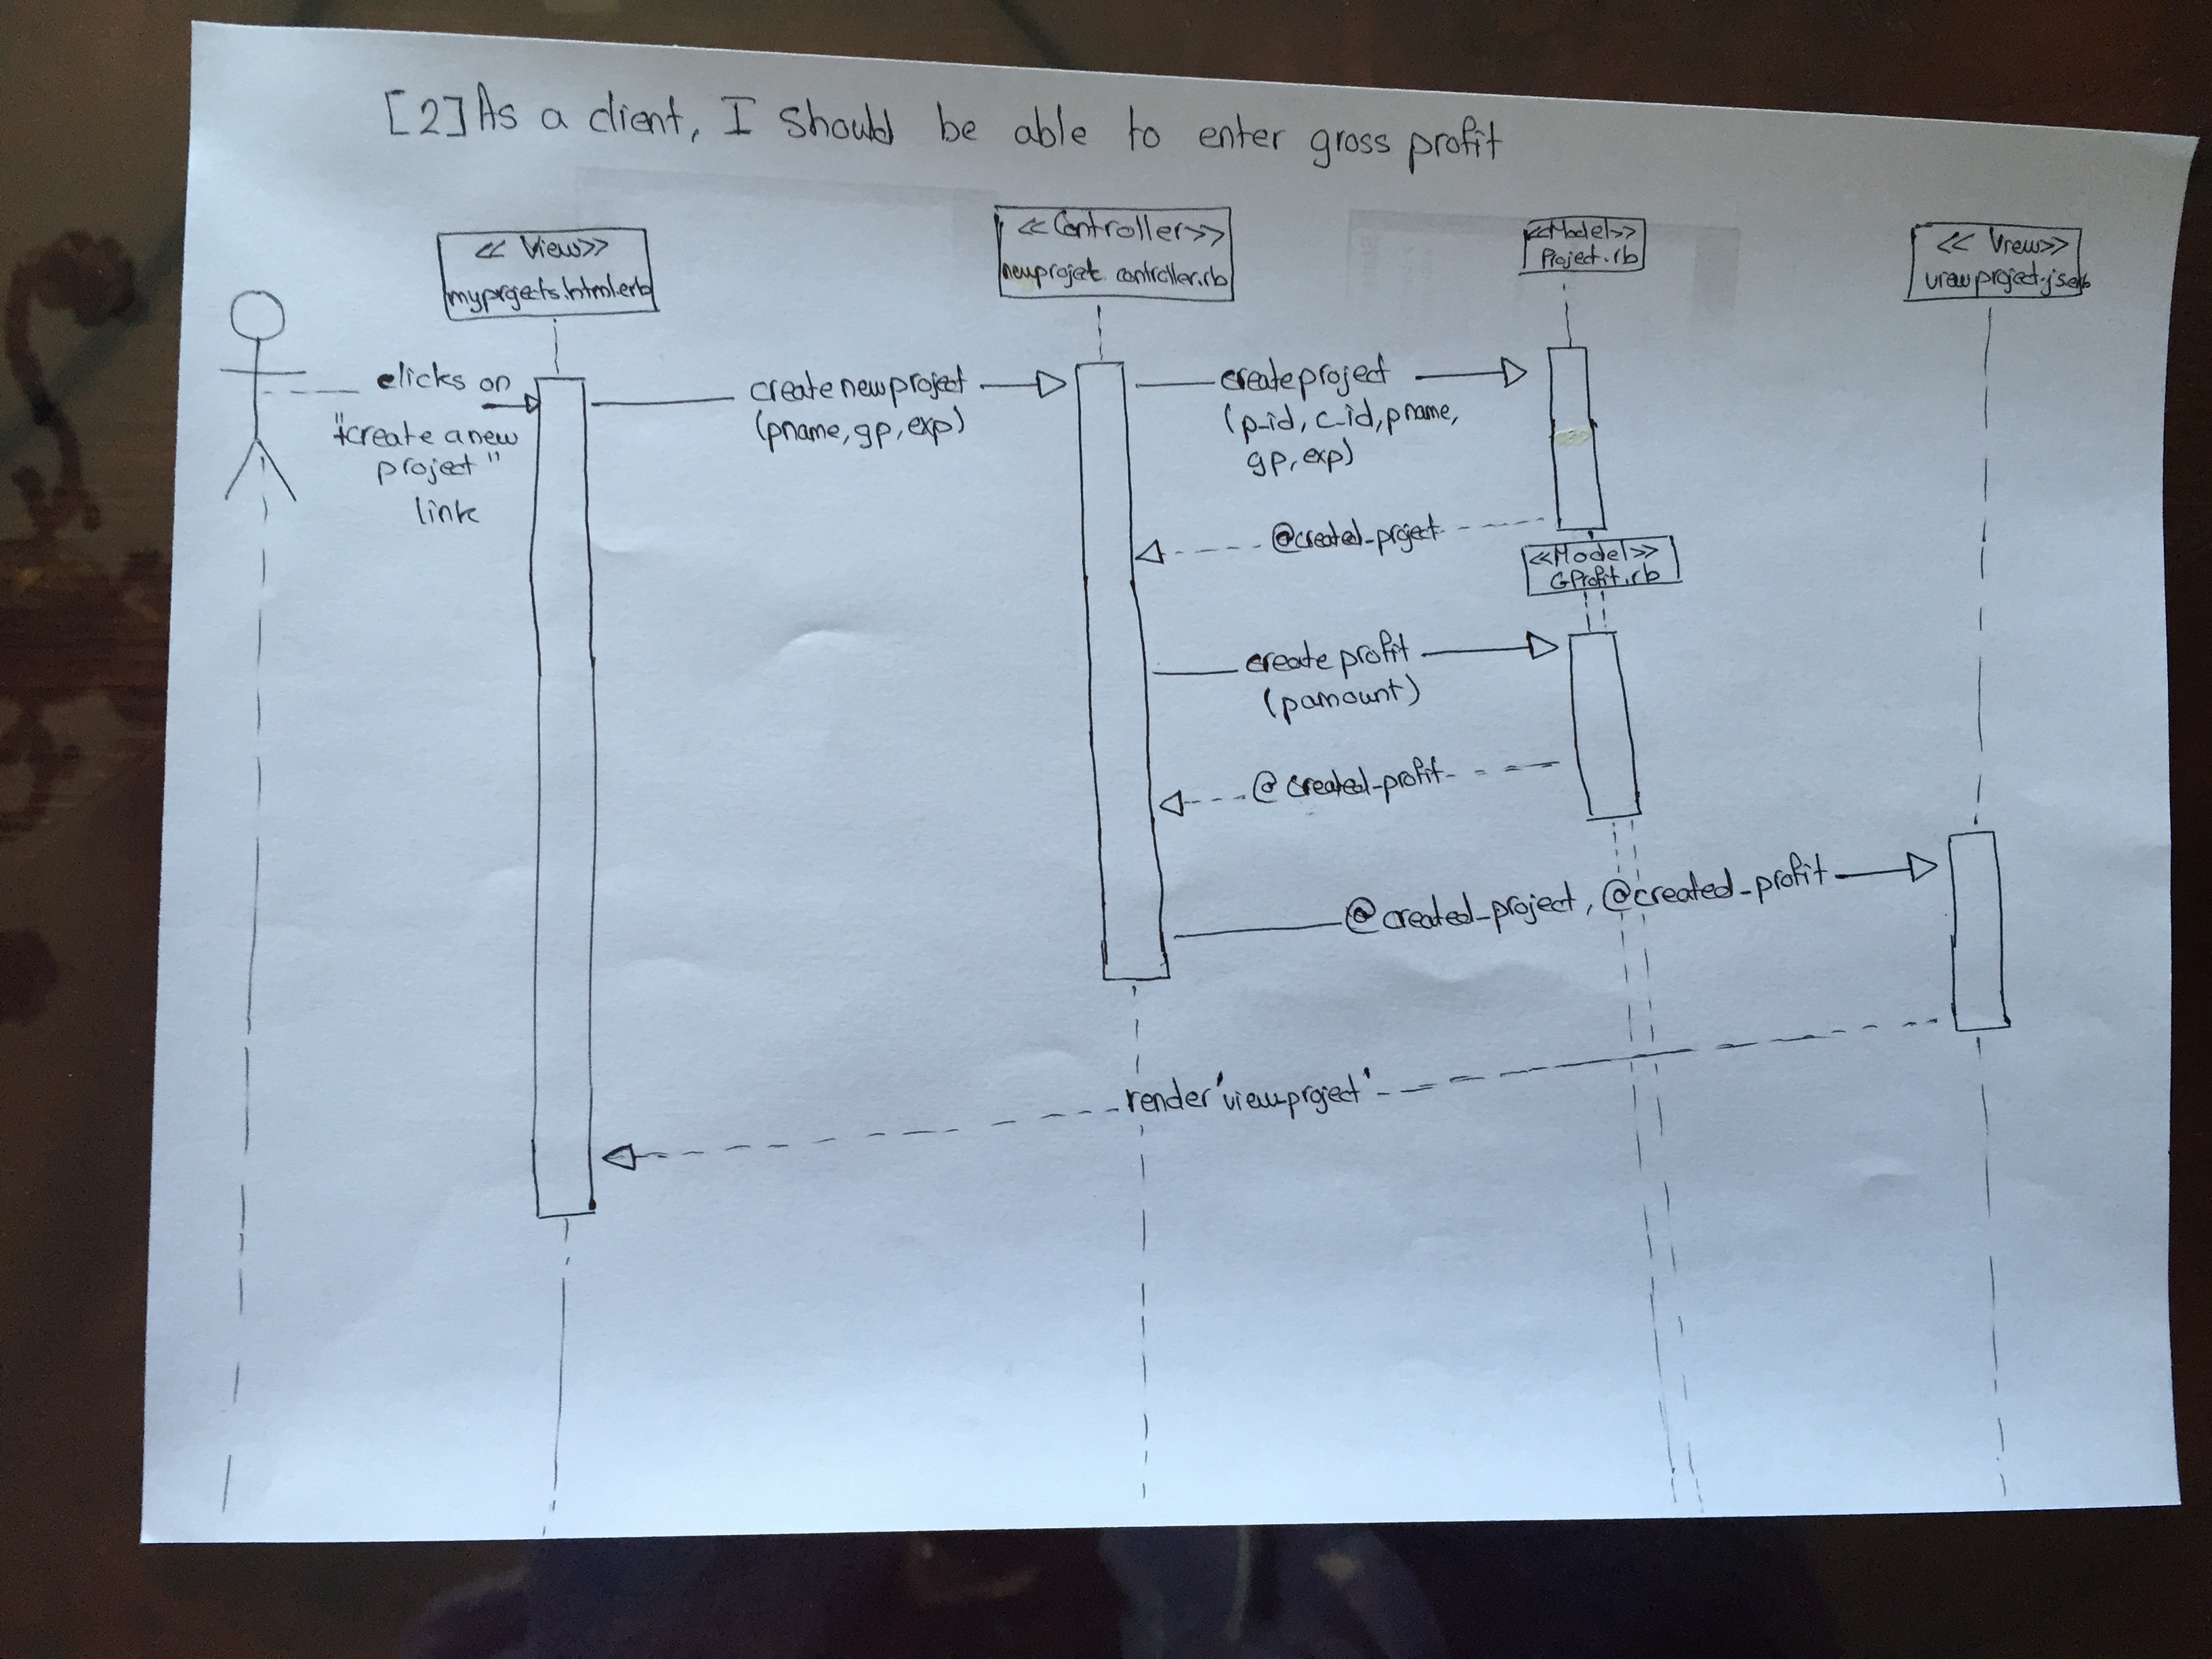 [2] As a client, I should be able to enter gross profit
<< View>>
myprojects.html.erb
<<Controller>>
newproject controller.rb
<<Model>>
Project.rb
<< View>>
viewproject.js.erb
clicks on
"+create a new
project"
link
create new project
(pname, gp, exp)
create project
(p_id, c_id, pname,
gp, exp)
@created_project
<<Model>>
GProfit.rb
create profit
(pamount)
@created_profit
@created_project, @created_profit
render 'viewproject'